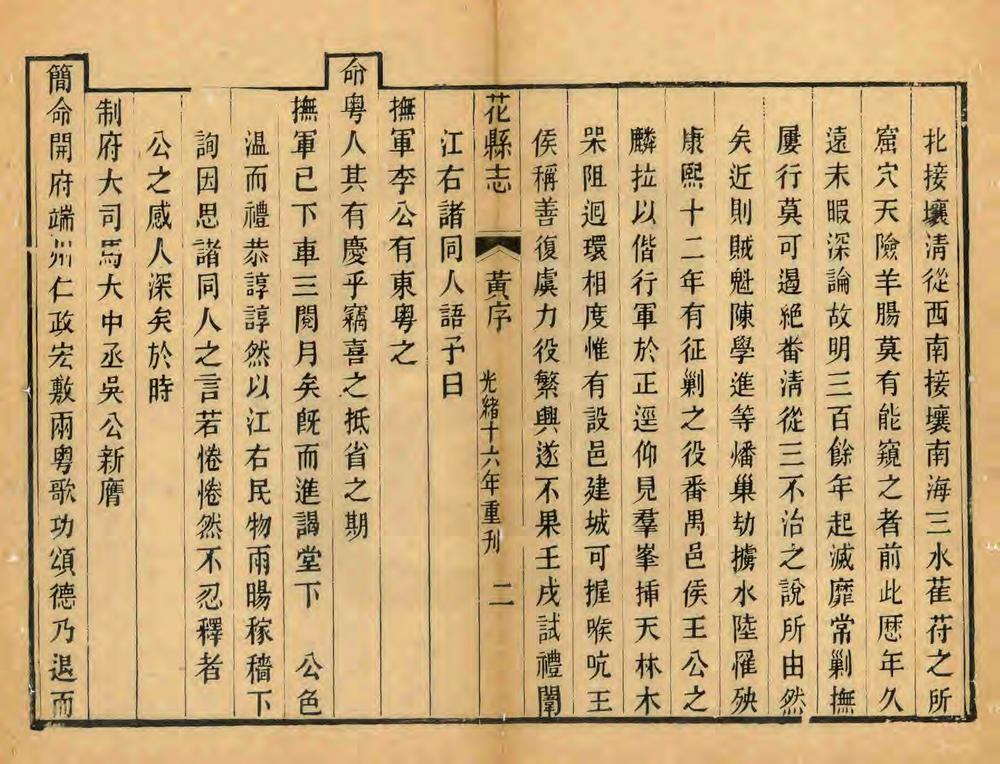 北接壤清從西南接壤南海三水萑苻之所
窟穴天險羊腸莫有能窺之者前此歷年久
遠未暇深論故明三百餘年起滅靡常剿撫
屢行莫可遏絕番清從三不治之說所由然
矣近則賊魁陳學進等燔巢劫擄水陸罹殃
康熙十二年有征剿之役番禺邑侯王公之
麟拉以偕行軍於正逕仰見羣峯揷天林木
罙阻迴環相度惟有設邑建城可握喉吭王
侯稱善復虞力役繁興遂不果壬戌試禮闈
花縣志 黃序 光緒十六年重刊 二
江右諸同人語予曰
撫軍李公有東粵之
命粵人其有慶乎竊喜之抵省之期
撫軍已下車三閱月矣旣而進謁堂下 公色
溫而禮恭諄諄然以江右民物雨暘稼穡下
詢因思諸同人之言若惓惓然不忍釋者
公之感人深矣於時
制府大司馬大中丞吳公新膺
簡命開府端州仁政宏敷兩粵歌功頌德乃退而